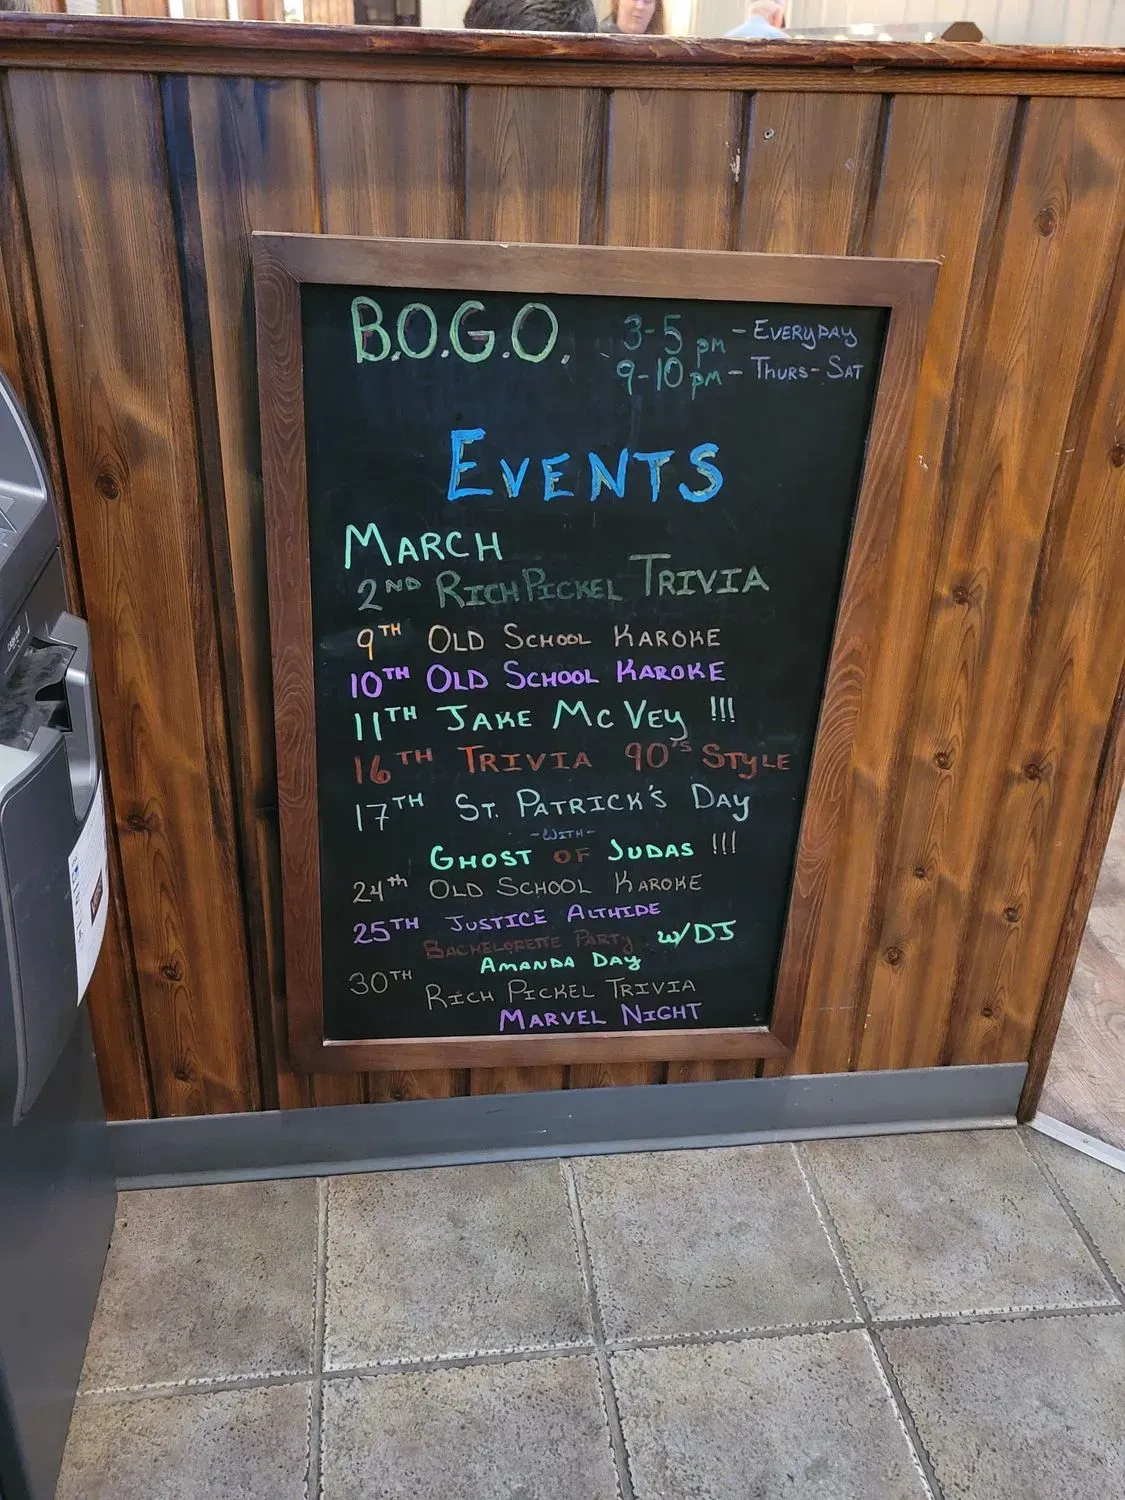 B.O.G.O. 3-5 pm - EVERYDAY
9-10 pm - THURS-SAT
EVENTS
MARCH
2ND RICH PICKEL TRIVIA
9TH OLD SCHOOL KAROKE
10TH OLD SCHOOL KAROKE
11TH JAKE MCVEY !!!
16TH TRIVIA 90'S STYLE
17TH ST. PATRICK'S DAY
-WITH-
GHOST OF JUDAS !!!
24th OLD SCHOOL KAROKE
25TH JUSTICE ALTHIDE
BACHELORETTE PARTY W/DJ
AMANDA DAY
30TH RICH PICKEL TRIVIA
MARVEL NIGHT